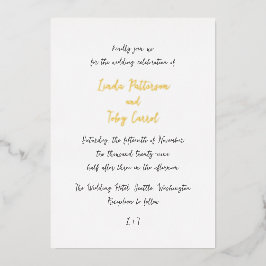 Kindly join us
for the wedding celebration of
Linda Patterson
and
Toby Carrol
Saturday, the fifteenth of November
two thousand twenty-nine
half after three in the afternoon
The Wedding Hotel Seattle, Washington
Reception to follow
L + T